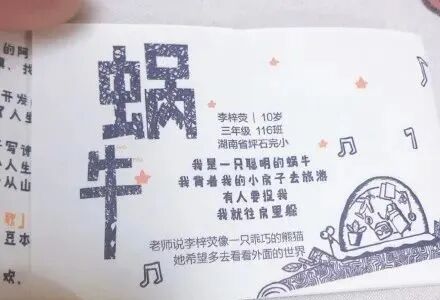 的阿
猫、找
开发
了人生
写诗
小人生
从山
歌」
豆本
欢.
蜗牛
李梓荧 | 10岁
三年级 116班
湖南省坪石完小
我是一只聪明的蜗牛
我背着我的小房子去旅游
有人要捉我
我就往房里躲
老师说李梓荧像一只乖巧的熊猫
她希望多去看看外面的世界